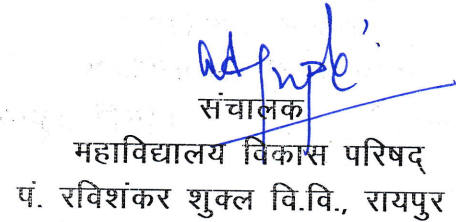 संचालक
महाविद्यालय विकास परिषद्
पं. रविशंकर शुक्ल वि.वि., रायपुर